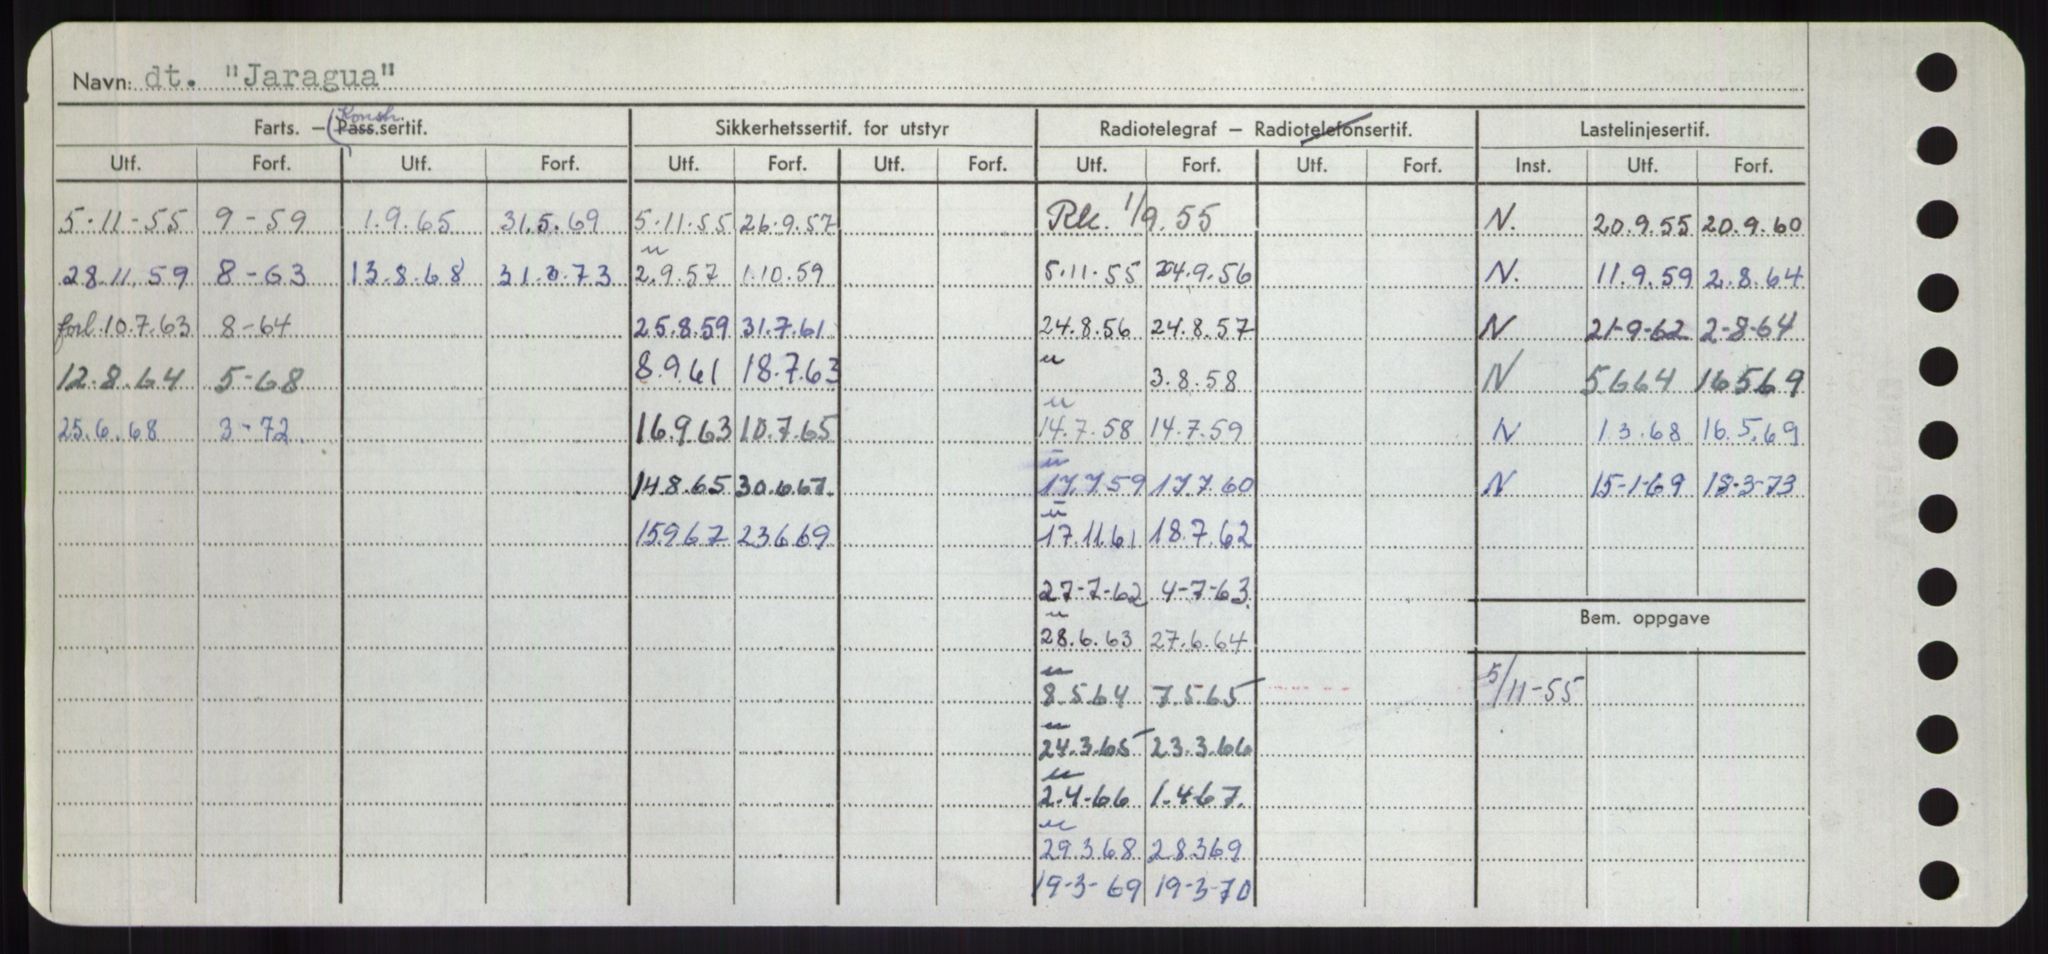 Navn: dt. "Jaragua"
Konstr.
Farts. – Pass.sertif. Sikkerhetssertif. for utstyr Radiotelegraf – Radiotelefonsertif. Lastelinjesertif.
Utf. Forf. Utf. Forf. Utf. Forf. Utf. Forf. Utf. Forf. Utf. Forf. Inst. Utf. Forf.
5-11-55 9-59 1.9.65 31.5.69 5.11.55 26.9.57 Rk. 1/9.55 N. 20.9.55 20.9.60
u
28.11.59 8-63 13.8.68 31.3.73 2.9.57 1.10.59 5.11.55 24.9.56 N. 11.9.59 2.8.64
forl. 10.7.63 8-64 25.8.59 31.7.61 24.8.56 24.8.57 N 21-9-62 2-8-64
u
12.8.64 5-68 8.9.61 18.7.63 3.8.58 N 5.6.64 16569
u
25.6.68 3-72. 16.963 10.7.65 14.7.58 14.7.59 N 1.3.68 16.5.69
u
14.8.65 30.6.67. 17.7.59 17.7.60 N 15-1-69 18-3-73
u
15967 23.6.69 17.11.61 18.7.62
27-7-62 4-7-63
Bem. oppgave
u
28.6.63 27.6.64
u
8.5.64 7.5.65 5/11-55
u
24.3.65 23.3.66
u
2.4-66 1.4-67.
u
29.3.68 28369
19-3-69 19-3-70